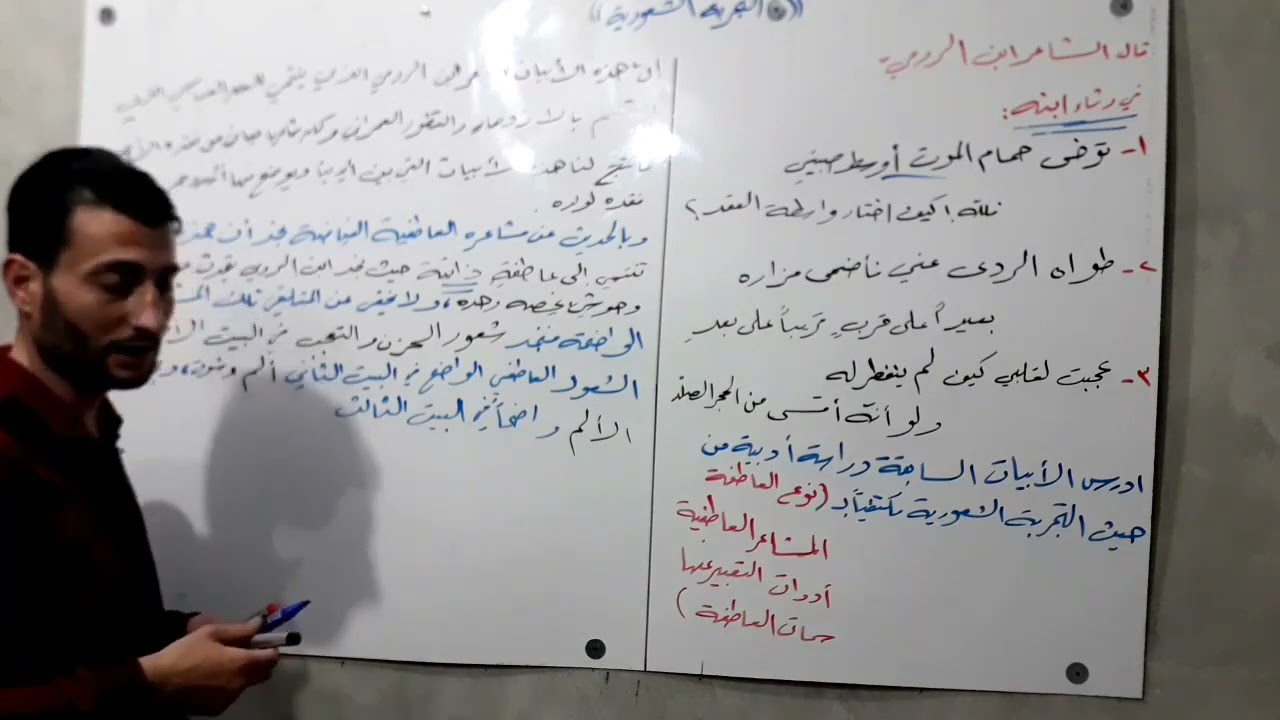 ((التجربة الشعورية))
قال الشاعر ابن الرومي
في رثاء ابنه:
١- توخى حمام الموت أوسط صبيتي
فلله كيف اختار واسطة العقد؟
٢- طواه الردى عني فأضحى مزاره
بعيداً على قربٍ قريباً على بعدِ
٣- عجبت لقلبي كيف لم ينفطر له
ولو أنه أقسى من الحجر الصلد
ادرس الأبيات السابقة دراسة أدبية من
حيث التجربة الشعورية مكتفياً بـ (نوع العاطفة
المشاعر العاطفية
أدوات التعبير عنها
سمات العاطفة)
إن هذه الأبيات الرومي الذي ينتمي
بالازدهار والتطور العمراني
لنا هذه الأبيات التي بين أيدينا
فقده لولده.
وبالحديث عن مشاعره العاطفية الفياضة نجد أن
تنتمي إلى عاطفةٍ ذاتية حيث نجد ابن الرومي
يخصه وحده، ولا يخفى عن المتلقي تلك
الواضحة فنجد شعور الحزن والتعجب في البيت
الشعور العاطفي الواضح في البيت الثاني ألم
الألم واضحاً في البيت الثالث